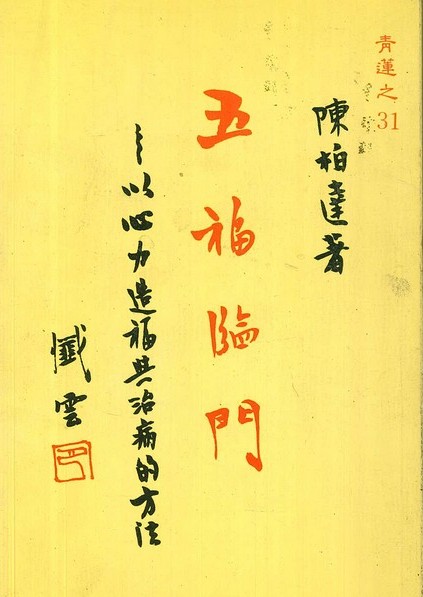 青蓮之31
陳柏達著
五福臨門
～以心力造福與治病的方法
懺雲